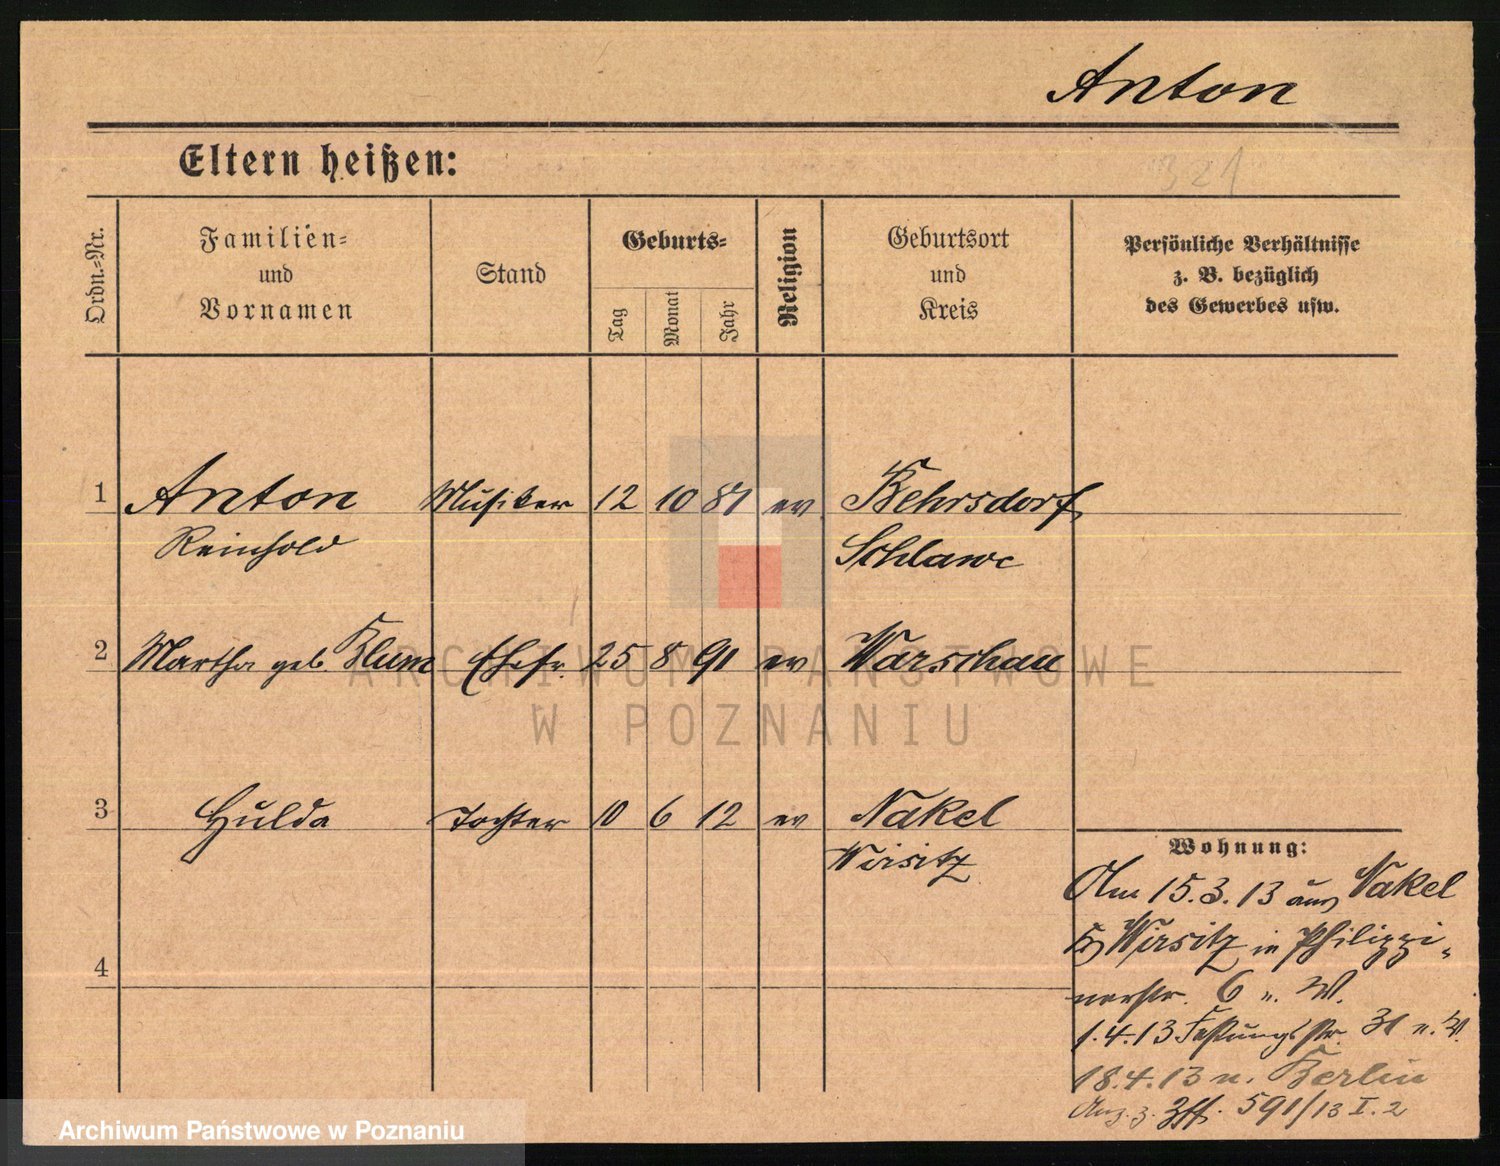 Anton
Eltern heißen:
321
Ordn.-Nr.
Familien-
und
Vornamen
Stand
Geburts-
Tag
Monat
Jahr
Religion
Geburtsort
und
Kreis
Persönliche Verhältnisse
z. B. bezüglich
des Gewerbes usw.
1 Anton Musiker 12 10 87 ev Behrsdorf
Reinhold Schlawe
2 Martha geb Blum Ehefr. 25 8 91 ev Warschau
ARCHIWUM PAŃSTWOWE
W POZNANIU
3 Hulda Tochter 10 6 12 ev Nakel
Wirsitz
4
Wohnung:
Am 15.3.13 aus Nakel
Kr Wirsitz in Philippi-
nerstr. 6 n. W.
1.4.13 Festungsstr. 31 n. W.
18.4.13 n. Berlin
Anz. z. 591/13 I. 2
Archiwum Państwowe w Poznaniu